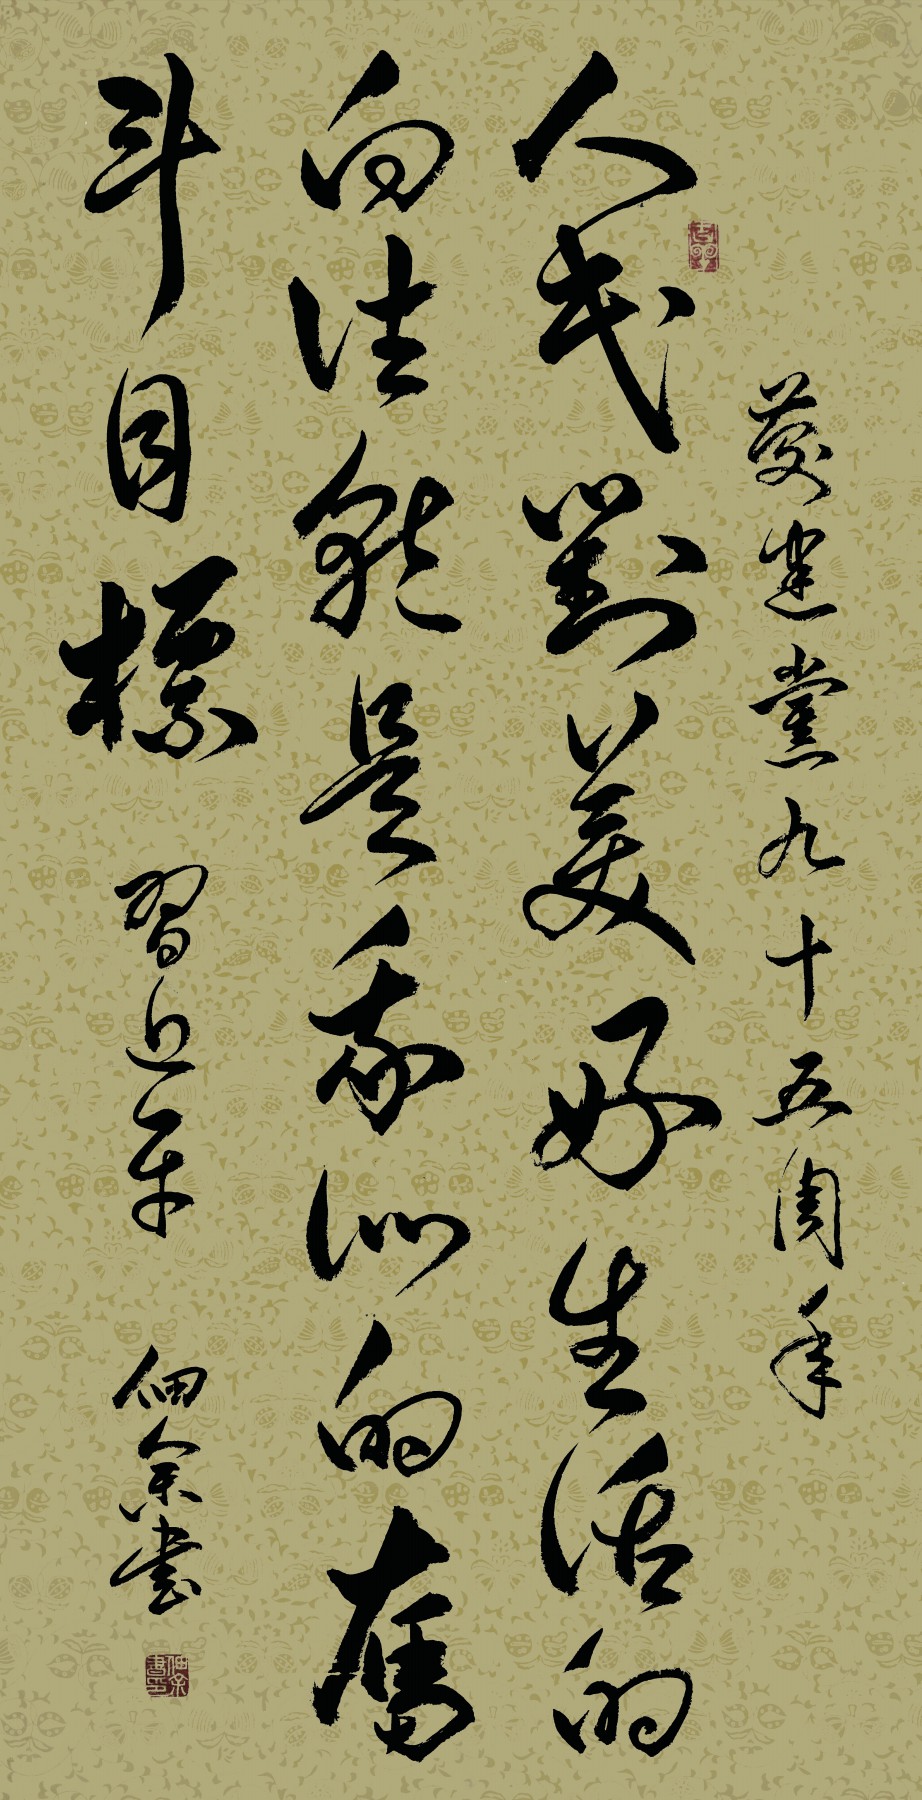 慶建黨九十五周年
人民對美好生活的
向往就是我們的奮
斗目標 習近平 佃余書